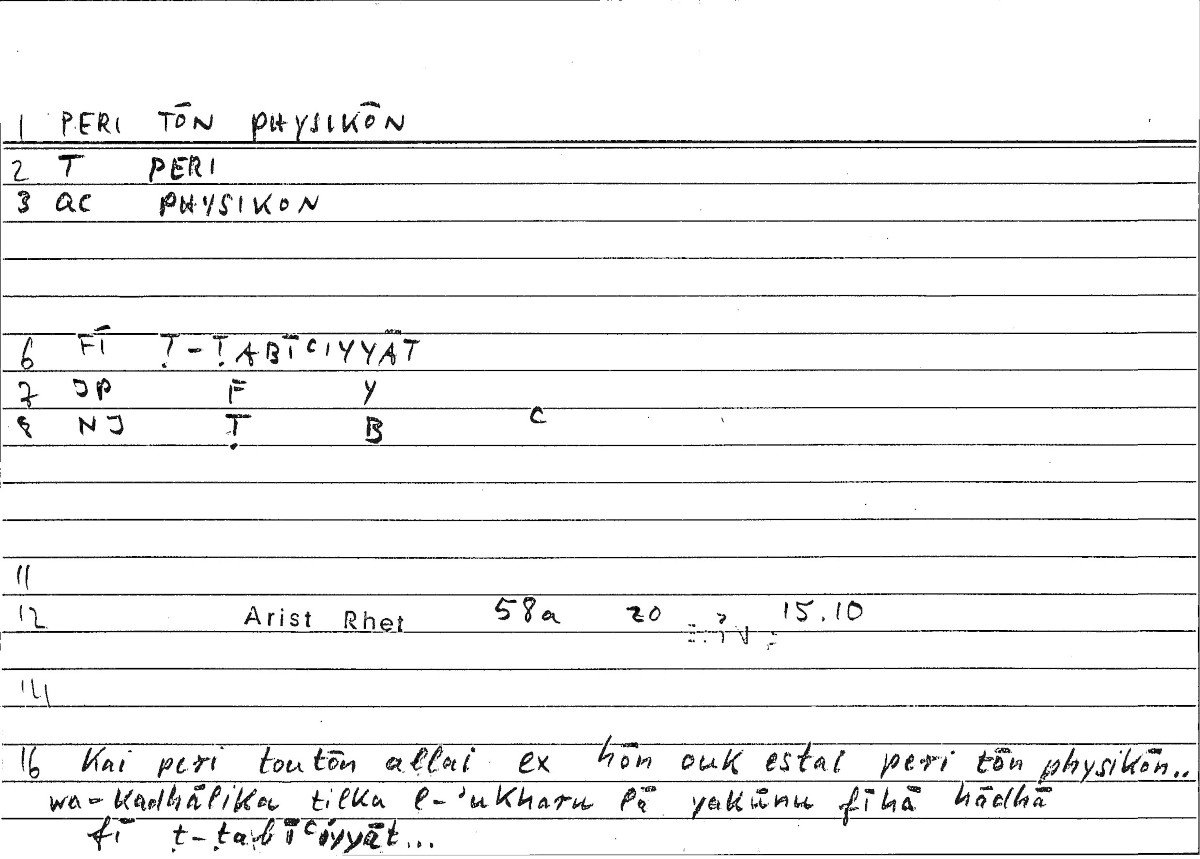 1 PERI TŌN PHYSIKŌN
2 T PERI
3 QC PHYSIKON
6 FĪ Ṭ-ṬABĪʿIYYĀT
7 JP F Y
8 NJ Ṭ B C
11
12 Arist Rhet 58a 20 15.10
14
16 Kai peri toutōn allai ex hōn ouk estai peri tōn physikōn..
wa-kadhālika tilka l-'ukharu lā yakūnu fīhā hādhā
fī ṭ-ṭabīʿiyyāt...